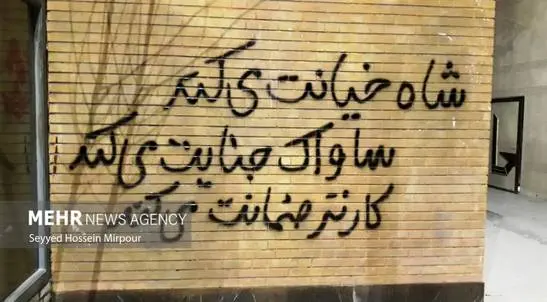 شاه خیانت می‌کند
ساواک جنایت می‌کند
کارتر ضمانت می‌کند
MEHR NEWS AGENCY
Seyyed Hossein Mirpour